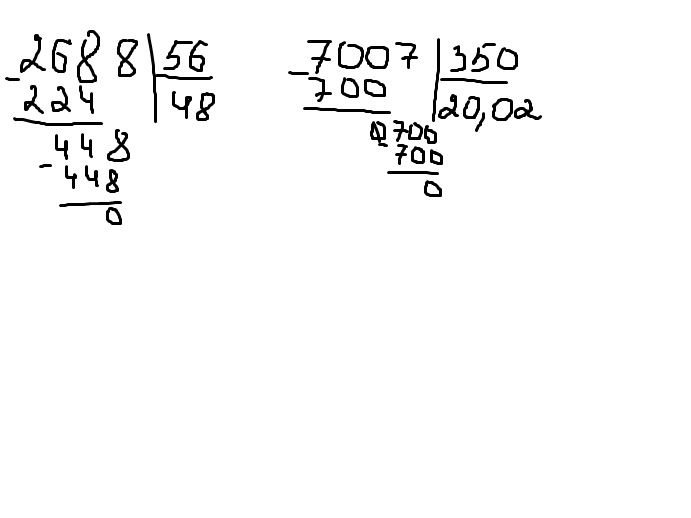 2688 56
-224 48
448
-448
0
7007 350
-700 20,02
0700
-700
0